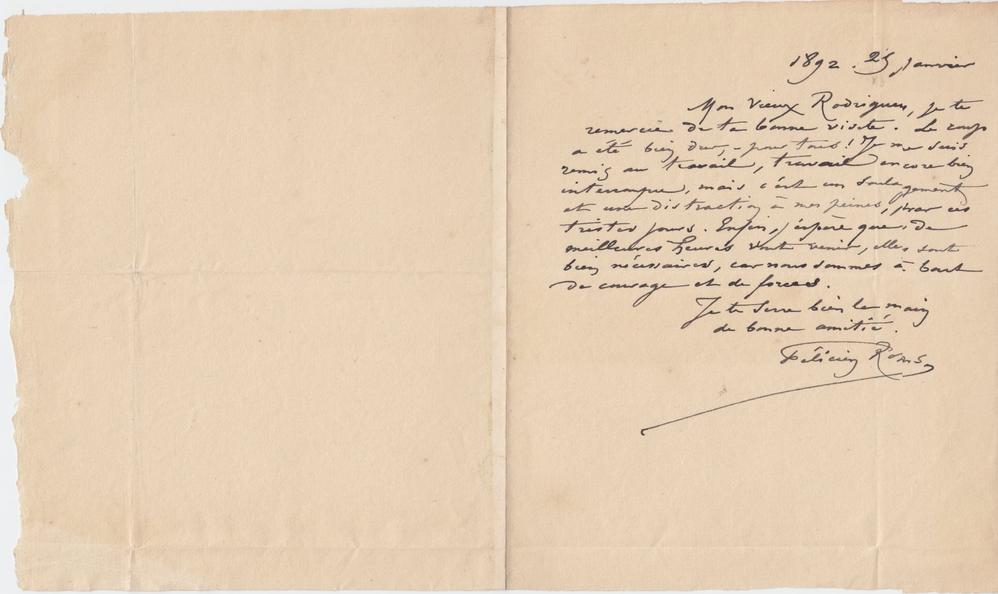 1892. 25 Janvier
Mon Vieux Rodrigues, je te
remercie de ta bonne visite. Le coup
a été bien dur, - pour tous! Je me suis
remis au travail, travail encore bien
interrompu, mais c'est un soulagement
et une distraction à mes peines, par ces
tristes jours. Enfin, j'espère que de
meilleures heures vont venir, elles sont
bien nécessaires, car nous sommes à bout
de courage et de forces.
Je te serre bien la main
de bonne amitié.
Félicien Rops